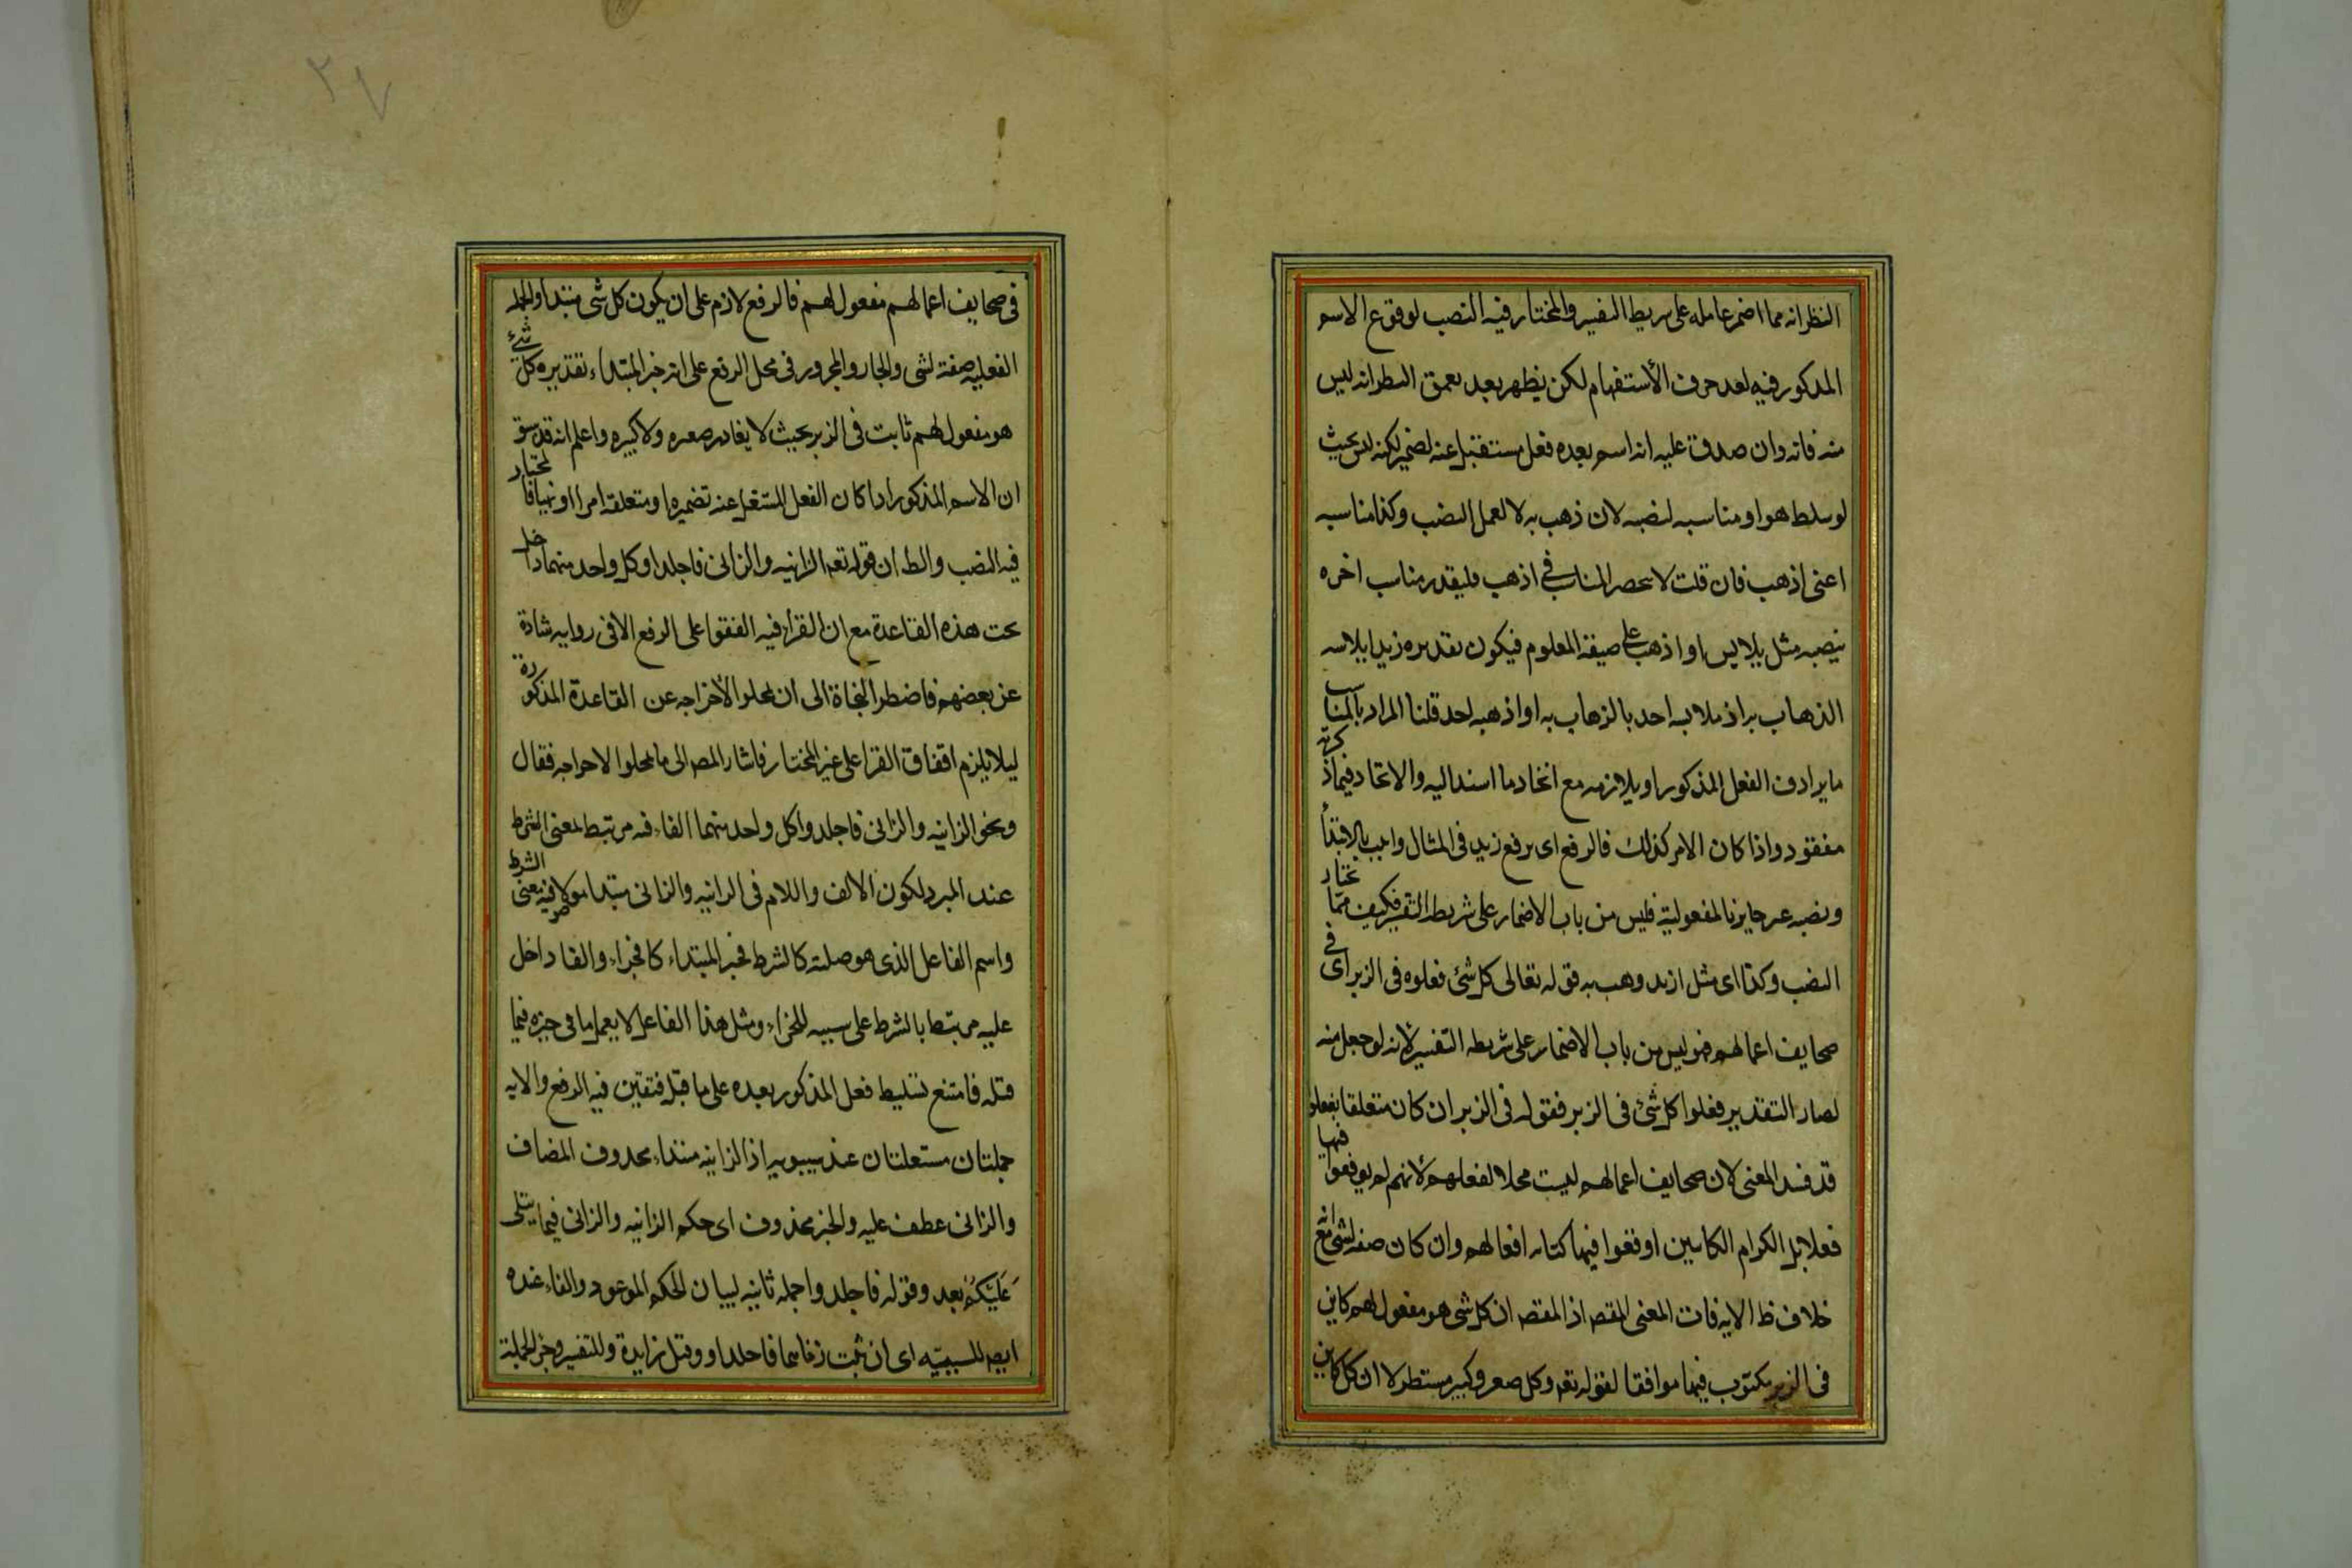 النظر انه مما اضمر عامله على شريط التفسير والمختار فيه النصب لوقوع الاسم
المذكور فيه بعد حرف الأستفهام لكن يظهر بعد تعمق النظر انه ليس
منه فانه وان صدق عليه انه اسم بعده فعل مشتغل عنه لضمير لكنه ليس بحيث
لو سلط هو او مناسبه لنصبه لان ذهب به لا لعمل النصب وكذا مناسبه
اعنى اذهب فان قلت لا ىحصر المناسب فى اذهب فليقدر مناسب اخره
ينصبه مثل يلابس او اذهب على صيغة المعلوم فيكون تقديره زيدا يلابسه
الذهاب به اذ ملابسه احد بالذهاب به او اذهبه احد قلنا المراد بالمناسب
ما يرادف الفعل المذكور او يلازمه مع اتحاد ما اسند اليه والاتحاد فيما ذكرته
مفقود واذا كان الامر كذلك فالرفع اى رفع زيد فى المثال واجب بالابتدأ
ونصبه غير جايز بالمفعولية فليس من باب الاضمار على شريطه التفسير فكيف مما يختار
النصب وكذا اى مثل ازيد ذهب به قوله تعالى كل شئ فعلوه فى الزبر اى فى
صحايف اعمالهم فهو ليس من باب الاضمار على شريطه التفسير لأنه لو جعل منه
لصار التقدير فعلوا كل شئ فى الزبر فقوله فى الزبر ان كان متعلقا بفعلوا
قد فسد المعنى لان صحايف اعمالهم ليست محلا لفعلهم لأنهم لم يوقعوا فيها
فعلا بل الكرام الكاتبين اوقعوا فيها كتابه افعالهم وان كان صفه لشى مع انه
خلاف ظ الايه فات المعنى المقص اذ المقص ان كل شى هو مفعول لهم كاين
فى الزبر مكتوب فيها موافقا لقوله تع وكل صغير وكبير مستطر لا ان كل كاين
فى صحايف اعمالهم مفعول لهم فالرفع لازم على ان يكون كل شى مبتدا والجمله
الفعليه صفة لشى والجار والمجرور فى محل الرفع على انه خبر المبتداء تقديره كل شئ
هو مفعول لهم ثابت فى الزبر بحيث لا يغادر صغيره ولا كبيره واعلم انه قد سبق
ان الاسم المذكور اذا كان الفعل المشتغل عنه تضميره او متعلقه امرا او نهيا فالمختار
فيه النصب والظ ان قوله تع الزانيه والزانى فاجلدوا كل واحد منهما داخل
تحت هذه القاعدة مع ان القراء فيه اتفقوا على الرفع الا فى روايه شاذة
عن بعضهم فاضطر النحاة الى ان تمحلوا لأخراجه عن القاعدة المذكورة
ليلا يلزم اتفاق القرا على غير المختار فاشار المص الى ما تمحلوا لاخراجه فقال
ونحو الزانيه والزانى فاجلدوا كل واحد منهما الفاء فيه مرتبط بمعنى الشرط
عند المبرد لكون الالف واللام فى الزانيه والزانى مبتدا موصولا فيه معنى الشرط
واسم الفاعل الذى هو صلته كالشرط فخبر المبتداء كالجزاء والفا داخل
عليه مرتبط بالشرط على سببيه للجزاء ومثل هذا الفاعل لا يعمل ما فى حيزه فيما
قبله فامتنع تسليط فعل المذكور بعده على ما قبله فتعين فيه الرفع والايه
جملتان مستقلتان عند سيبويه اذ الزانيه مبتداء محذوف المضاف
والزانى عطف عليه والخبر محذوف اى حكم الزانيه والزانى فيما يتلى
عَلَيْكُمْ بعد وقوله فاجلدوا جمله ثانيه لبيان الحكم الموعود والفاء عنده
ايض للسببيّه اى ان ثبت زناهما فاجلدوا وقيل زايدة وللتفسير وخبر الجملة